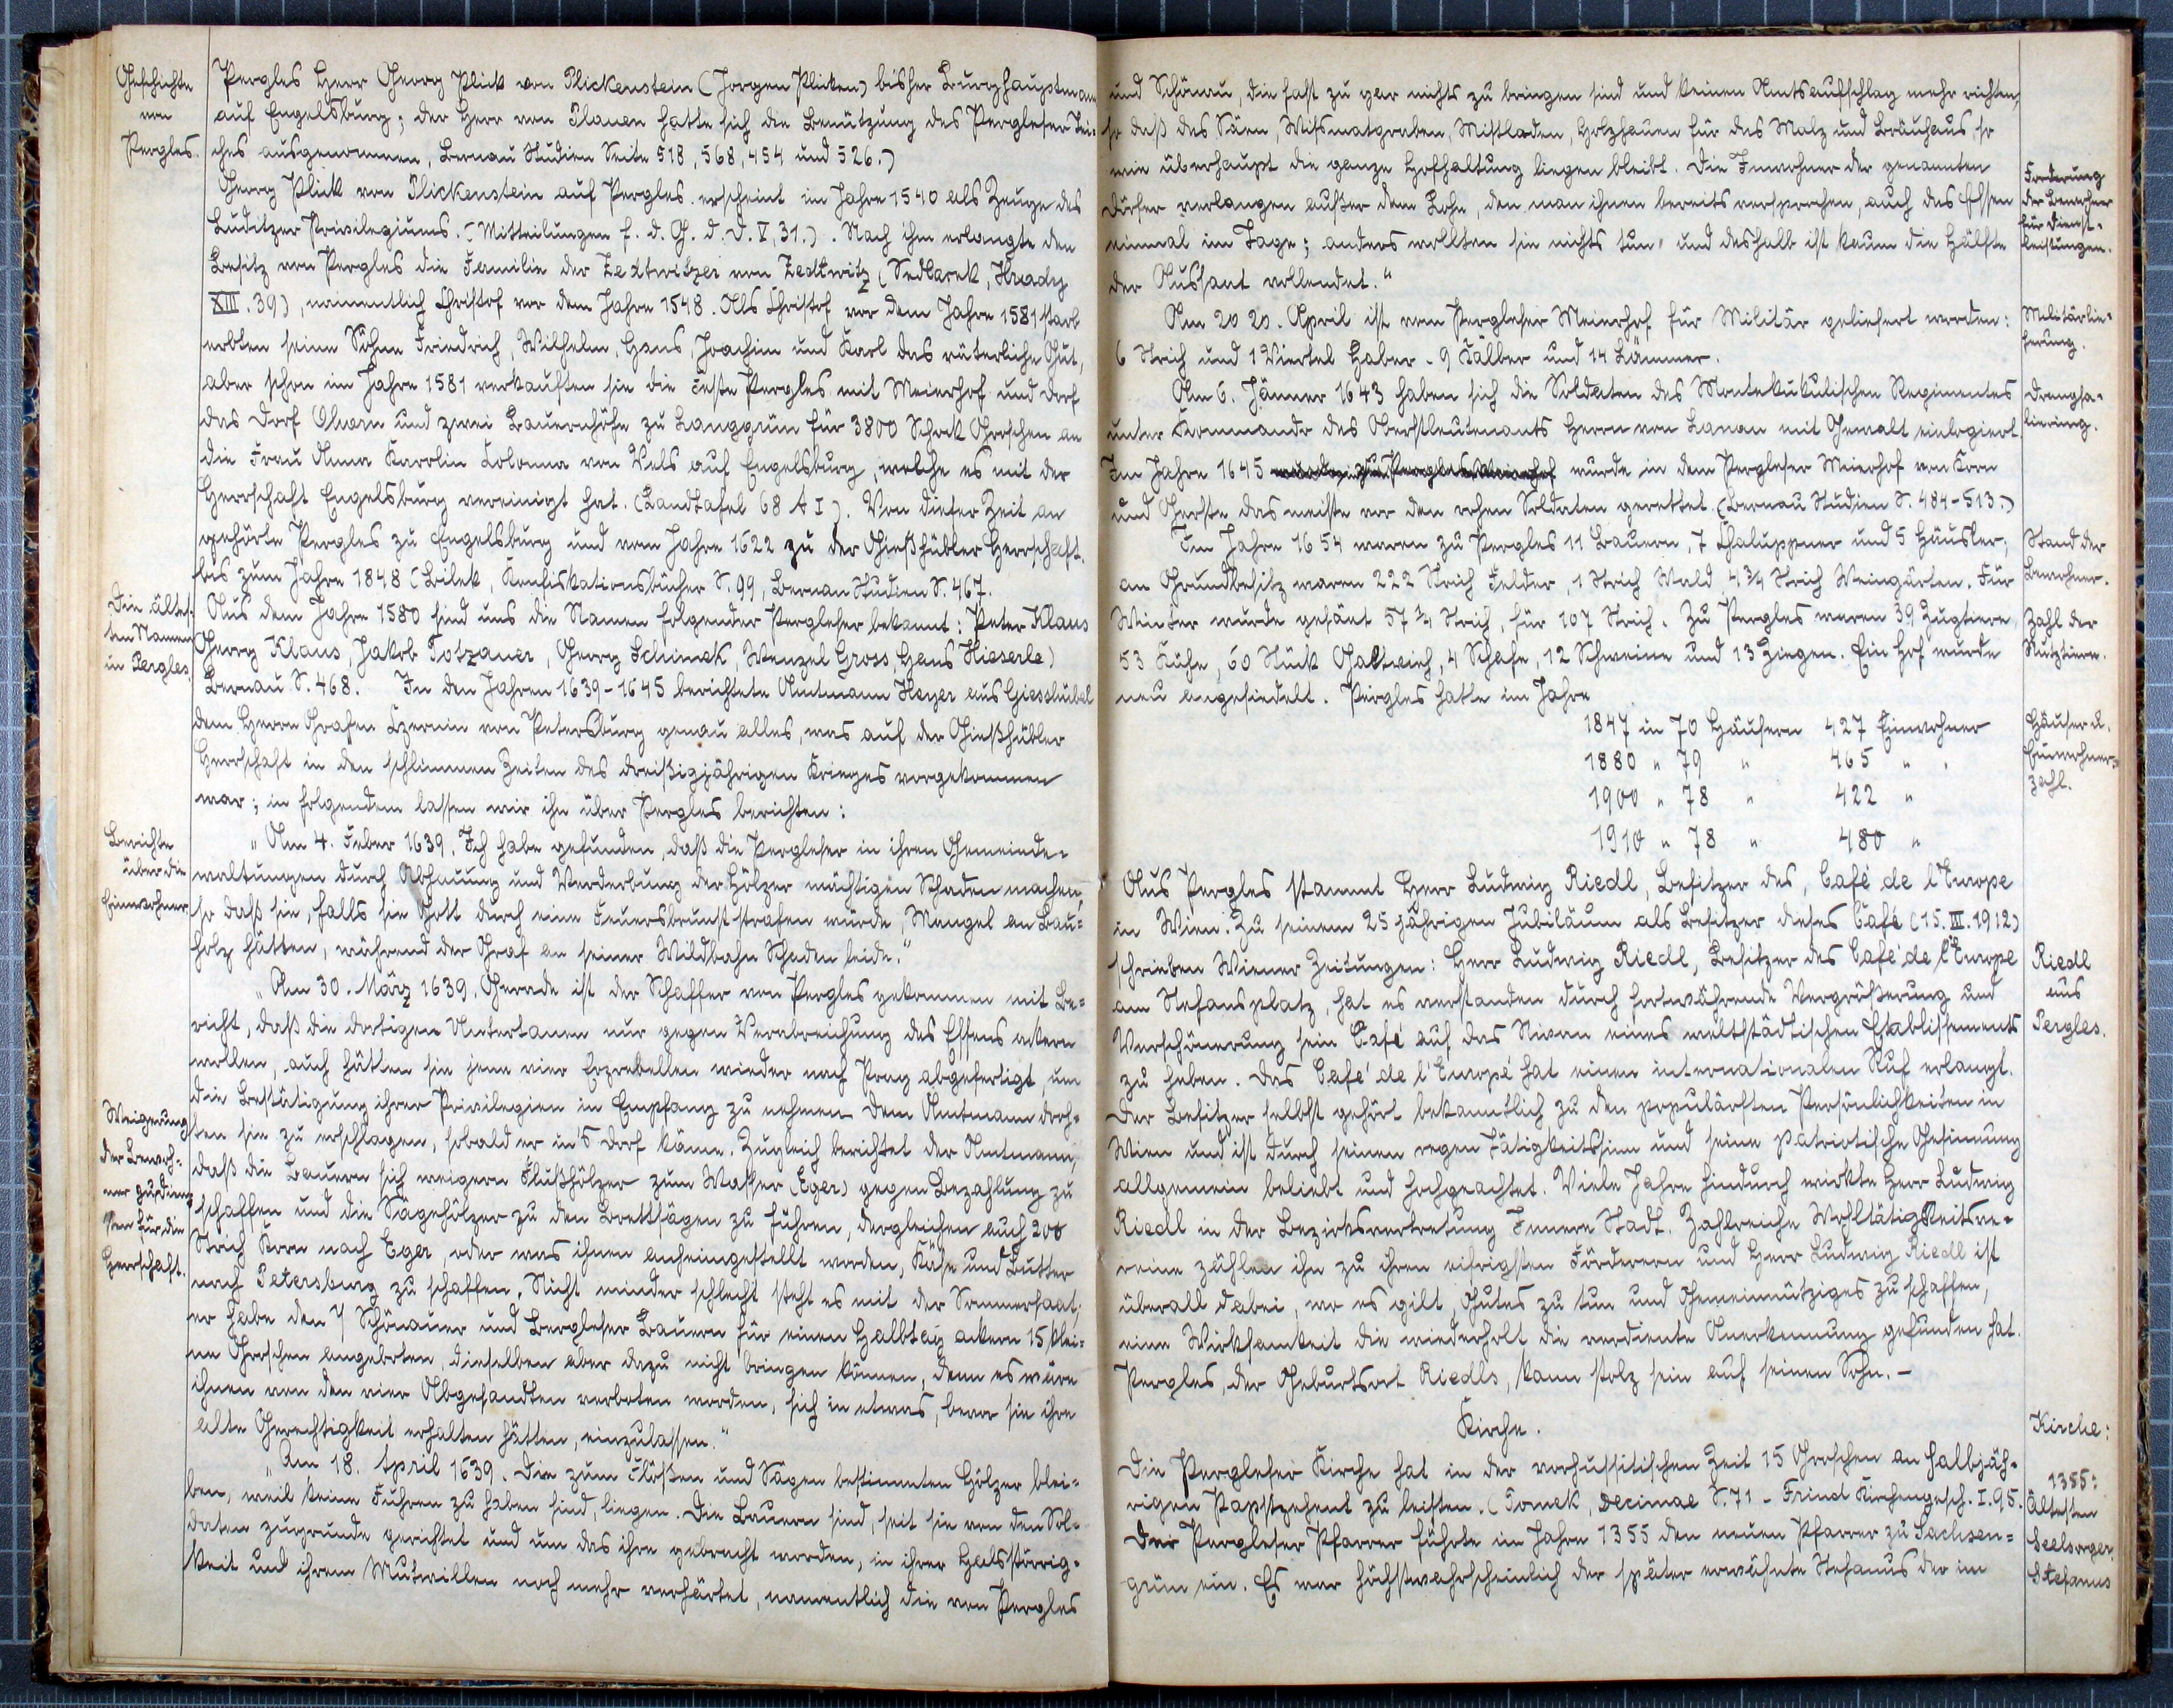 Geschichte
von
Pergles.
Pergles Herr Georg Plick von Plickenstein (Jorgen Plicken) bisher Burghauptmann
auf Engelsburg; der Herr von Plauen hatte sich die Benützung des Pergleser Tei-
ches ausgenommen, Bernau Studien Seite 518, 568, 454 und 526.)
Georg Plick von Plickenstein auf Pergles erscheint im Jahre 1540 als Zeuge des
Luditzer Privilegiums. (Mitteilungen f. d. G. d. D. V, 31.). Nach ihm erlangte den
Besitz von Pergles die Familie der Zedtwitzer von Zedtwitz (Sedlacek, Hrady
XIII. 39), namentlich Christof vor dem Jahre 1548. Als Christof vor dem Jahre 1581 starb
erbten seine Söhne Friedrich, Wilhelm, Hans, Joachim und Karl das väterliche Gut,
aber schon im Jahre 1581 verkauften sie die Feste Pergles mit Meierhof und Dorf
das Dorf und zwei Bauernhöfe zu Langgrün für 3800 Schock Groschen an
die Frau Anna Karolin Kolonna von Vels auf Engelsburg, welche es mit der
Herrschaft Engelsburg vereinigt hat. (Landtafel 68 A I). Von dieser Zeit an
gehörte Pergles zu Engelsburg und vom Jahre 1622 zu der Gießhübler Herrschaft
bis zum Jahre 1848 (Bilek, Konfiskationsbücher S. 99, Bernau Studien S. 467.
Die älte-
sten Namen
in Pergles.
Aus dem Jahre 1580 sind uns die Namen folgender Pergleser bekannt: Peter Klaus
Georg Klaus, Jakob Totzauer, Georg Schimek, Wenzel Gross, Hans Hieserle)
Bernau S. 468. In den Jahren 1639-1645 berichtete Amtmann Heyer aus Giesshübel
dem Herrn Grafen Czernin von Petersburg genau alles, was auf der Gießhübler
Herrschaft in den schlimmen Zeiten des dreißigjährigen Krieges vorgekommen
war; in folgendem lassen wir ihn über Pergles berichten:
Berichte
über die
Einwohner
„Am 4. Feber 1639. Ich habe gefunden, daß die Pergleser in ihren Gemeinde-
waltungen durch Abhauung und Verderbung der Hölzer mächtigen Schaden machen,
so daß sie, falls sie Gott durch eine Feuersbrunst strafen würde, Mangel an Bau-
holz hätten, während der Graf an seiner Wildbahn Schaden leide."
„Am 30. März 1639. Gerade ist der Schaffer von Pergles gekommen mit Be-
richt, daß die dortigen Untertanen nur gegen Verabreichung des Essens ackern
wollen, auch hätten sie jene vier Erzrebellen wieder nach Prag abgefertigt um
die Bestätigung ihrer Privilegien in Empfang zu nehmen. Dem Amtmann droh-
Weigerung
der Bewoh-
ner zu dien-
sten für die
Herrschaft.
ten sie zu erschlagen, sobald er in's Dorf käme. Zugleich berichtet der Amtmann,
daß die Bauern sich weigern Flußhölzer zum Wasser (Eger) gegen Bezahlung zu
schaffen und die Sägehölzer zu den Brettsägen zu führen, dergleichen auch 200
Strich Korn nach Eger, oder was ihnen anheimgestellt worden, Käse und Butter
nach Petersburg zu schaffen. Nicht minder schlecht steht es mit der Sommersaat;
er habe den 7 Schönauer und Bergleser Bauern für einen Halbtag ackern 15 klei-
ne Groschen angeboten, dieselben aber dazu nicht bringen können, denn es wäre
ihnen von den vier Abgesandten verboten worden, sich in etwas, bevor sie ihre
alte Gerechtigkeit erhalten hätten, einzulassen."
„Am 18. April 1639. Die zum Flößen und Sägen bestimmten Hölzer blei-
ben, weil keine Fuhren zu haben sind, liegen. Die Bauern sind, seit sie von den Sol-
daten zugrunde gerichtet und um das ihre gebracht worden, in ihrer Halsstörrig-
keit und ihrem Mutwillen noch mehr verhärtet, namentlich die von Pergles
und Schönau, die fast zu gar nichts zu bringen sind und keinen Amtsaufschlag mehr richten,
so daß das Säen, Mistladen, Holzhauen für das Malz und Bräuhaus, so
wie überhaupt die ganze Hofhaltung liegen bleibt. Die Inwohner der genannten
Dörfer verlangen außer dem Lohn, den man ihnen bereits versprochen, auch das Essen
einmal im Tage; anders wollten sie nichts tun, und deshalb ist kaum die Hälfte
der Aussaat vollendet."
Forderung
der Bewohner
für Dienst-
leistungen.
Am 20 20. April ist vom Pergleser Meierhof für Militär geliefert worden:
6 Strich und 1 Viertel Haber - 9 Kälber und 14 Lämmer.
Militärlie-
ferung.
Am 6. Jänner 1643 haben sich die Soldaten des Montekukulischen Regimentes
unter Kommando des Oberstleutenants Herrn von Lanau mit Gewalt einlogiert.
Drangsa-
lierung.
Im Jahre 1645 wurde in dem Pergleser Meierhof von Korn
und Gerste das meiste vor den rohen Soldaten gerettet. (Bernau Studien S. 484-513.)
Im Jahre 1654 waren zu Pergles 11 Bauern, 7 Chaluppner und 5 Häusler;
an Grundbesitz waren 222 Strich Felder, 1 Strich Wald, 4 3/4 Strich Weingärten. Für
Stand der
Bewohner.
Winter wurde gesäet 57 3/4 Strich, für 107 Strich. Zu Pergles waren 39 Zugtiere,
53 Kühe, 60 Stück Galtvieh, 4 Schafe, 12 Schweine und 13 Ziegen. Ein Hof wurde
neu angesiedelt. Pergles hatte im Jahre
Zahl der
Nutztiere.
1847 in 70 Häusern 427 Einwohner
1880 " 79 " 465 "
1900 " 78 " 422 "
1910 " 78 " 480 "
Häuser u.
Einwohner-
zahl.
Aus Pergles stammt Herr Ludwig Riedl, Besitzer des, Café de l'Europe
in Wien. Zu seinem 25 jährigen Jubiläum als Besitzer dieses Café (15. III. 1912)
schrieben Wiener Zeitungen: Herr Ludwig Riedl, Besitzer des Café de l'Europe
am Stefansplatz, hat es verstanden durch fortwährende Vergrößerung und
Verschönerung sein Café auf das Niveau eines weltstädtischen Etablissements
Riedl
aus
Pergles.
zu heben. Das Café de l'Europé hat einen internationalen Ruf erlangt.
Der Besitzer selbst gehört bekanntlich zu den populärsten Persönlichkeiten in
Wien und ist durch seinen regen Tätigkeitssinn und seine patriotische Gesinnung
allgemein beliebt und hochgeachtet. Viele Jahre hindurch wirkte Herr Ludwig
Riedl in der Bezirksvertretung Innere Stadt. Zahlreiche Wohltätigkeitsve-
reine zählen ihn zu ihren eifrigsten Förderern und Herr Ludwig Riedl ist
überall dabei, wo es gilt, Gutes zu tun und Gemeinnütziges zu schaffen,
eine Wirksamkeit die wiederholt die verdiente Anerkennung gefunden hat.
Pergles, der Geburtsort Riedls, kann stolz sein auf seinen Sohn. -
Kirche.
Kirche:
Die Pergleser Kirche hat in der vorhussitischen Zeit 15 Groschen an halbjäh-
rigen Papstzehent zu leisten. (Tomek, Decimae S. 71 - Frind Kirchengesch. I. 95.
Der Pergleser Pfarrer führte im Jahre 1355 den neuen Pfarrer zu Sachsen-
grün ein. Es war höchstwahrscheinlich der später erwähnte Stefanus der im
1355:
Ältesten
Seelsorger.
Stefanus